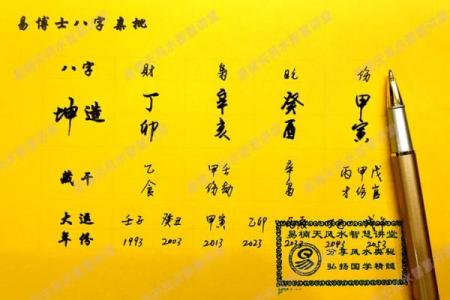 易博士八字集批
八字 財 梟 傷
坤造 丁卯 辛亥 癸酉 甲寅
藏干 乙 甲壬 辛 丙甲戊
食 傷劫 梟 才傷官
大运 壬子 癸丑 甲寅 乙卯
年份 1993 2003 2013 2023 2033 2043 2053
易楠天风水智慧讲堂
分享风水奥秘
弘扬国学精髓